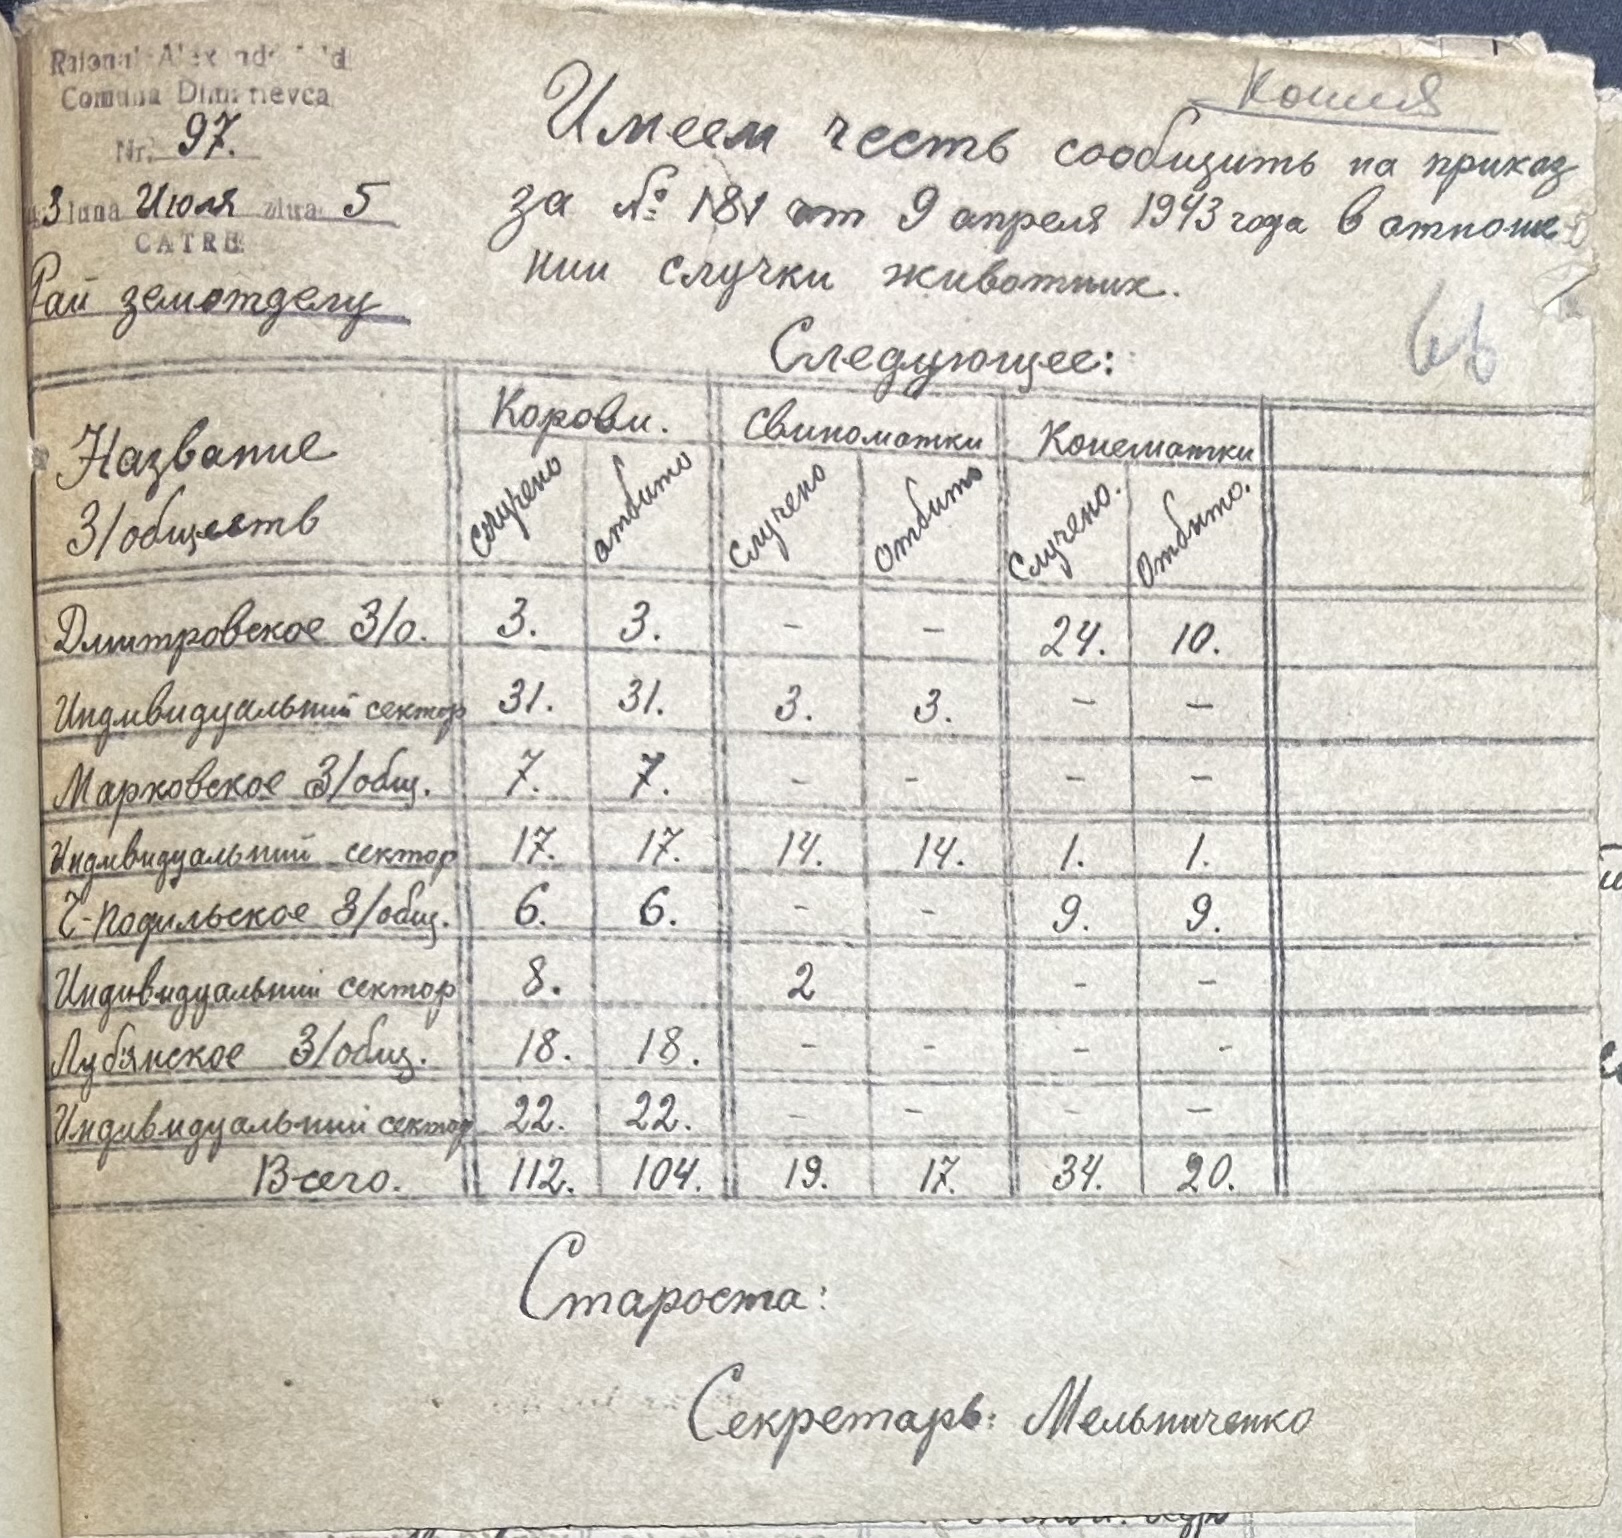 Копия
Comuna Dimitrievca
Nr. 97.
3 luna Июля ziua 5
CATRE
Рай земотделу
Имеем честь сообщить на приказ
за № 181 от 9 апреля 1943 года в отноше
нии случки животных.
Следующее:
Название З/обществ | Корови. | Свиноматки | Конематки
случено | отбито | случено | отбито | Случено. | Отбито.
Дмитровское З/о. | 3. | 3. | - | - | 24. | 10.
Индивидуальний сектор | 31. | 31. | 3. | 3. | - | -
Марковское З/общ. | 7. | 7. | - | - | - | -
Индивидуальний сектор | 17. | 17. | 14. | 14. | 1. | 1.
Ч-Подильское З/общ. | 6. | 6. | - | - | 9. | 9.
Индивидуальний сектор | 8. | | 2 | | - | -
Лубянское З/общ. | 18. | 18. | - | - | - | -
Индивидуальний сектор | 22. | 22. | - | - | - | -
Всего. | 112. | 104. | 19. | 17. | 34. | 20.
Староста:
Секретарь: Мельниченко